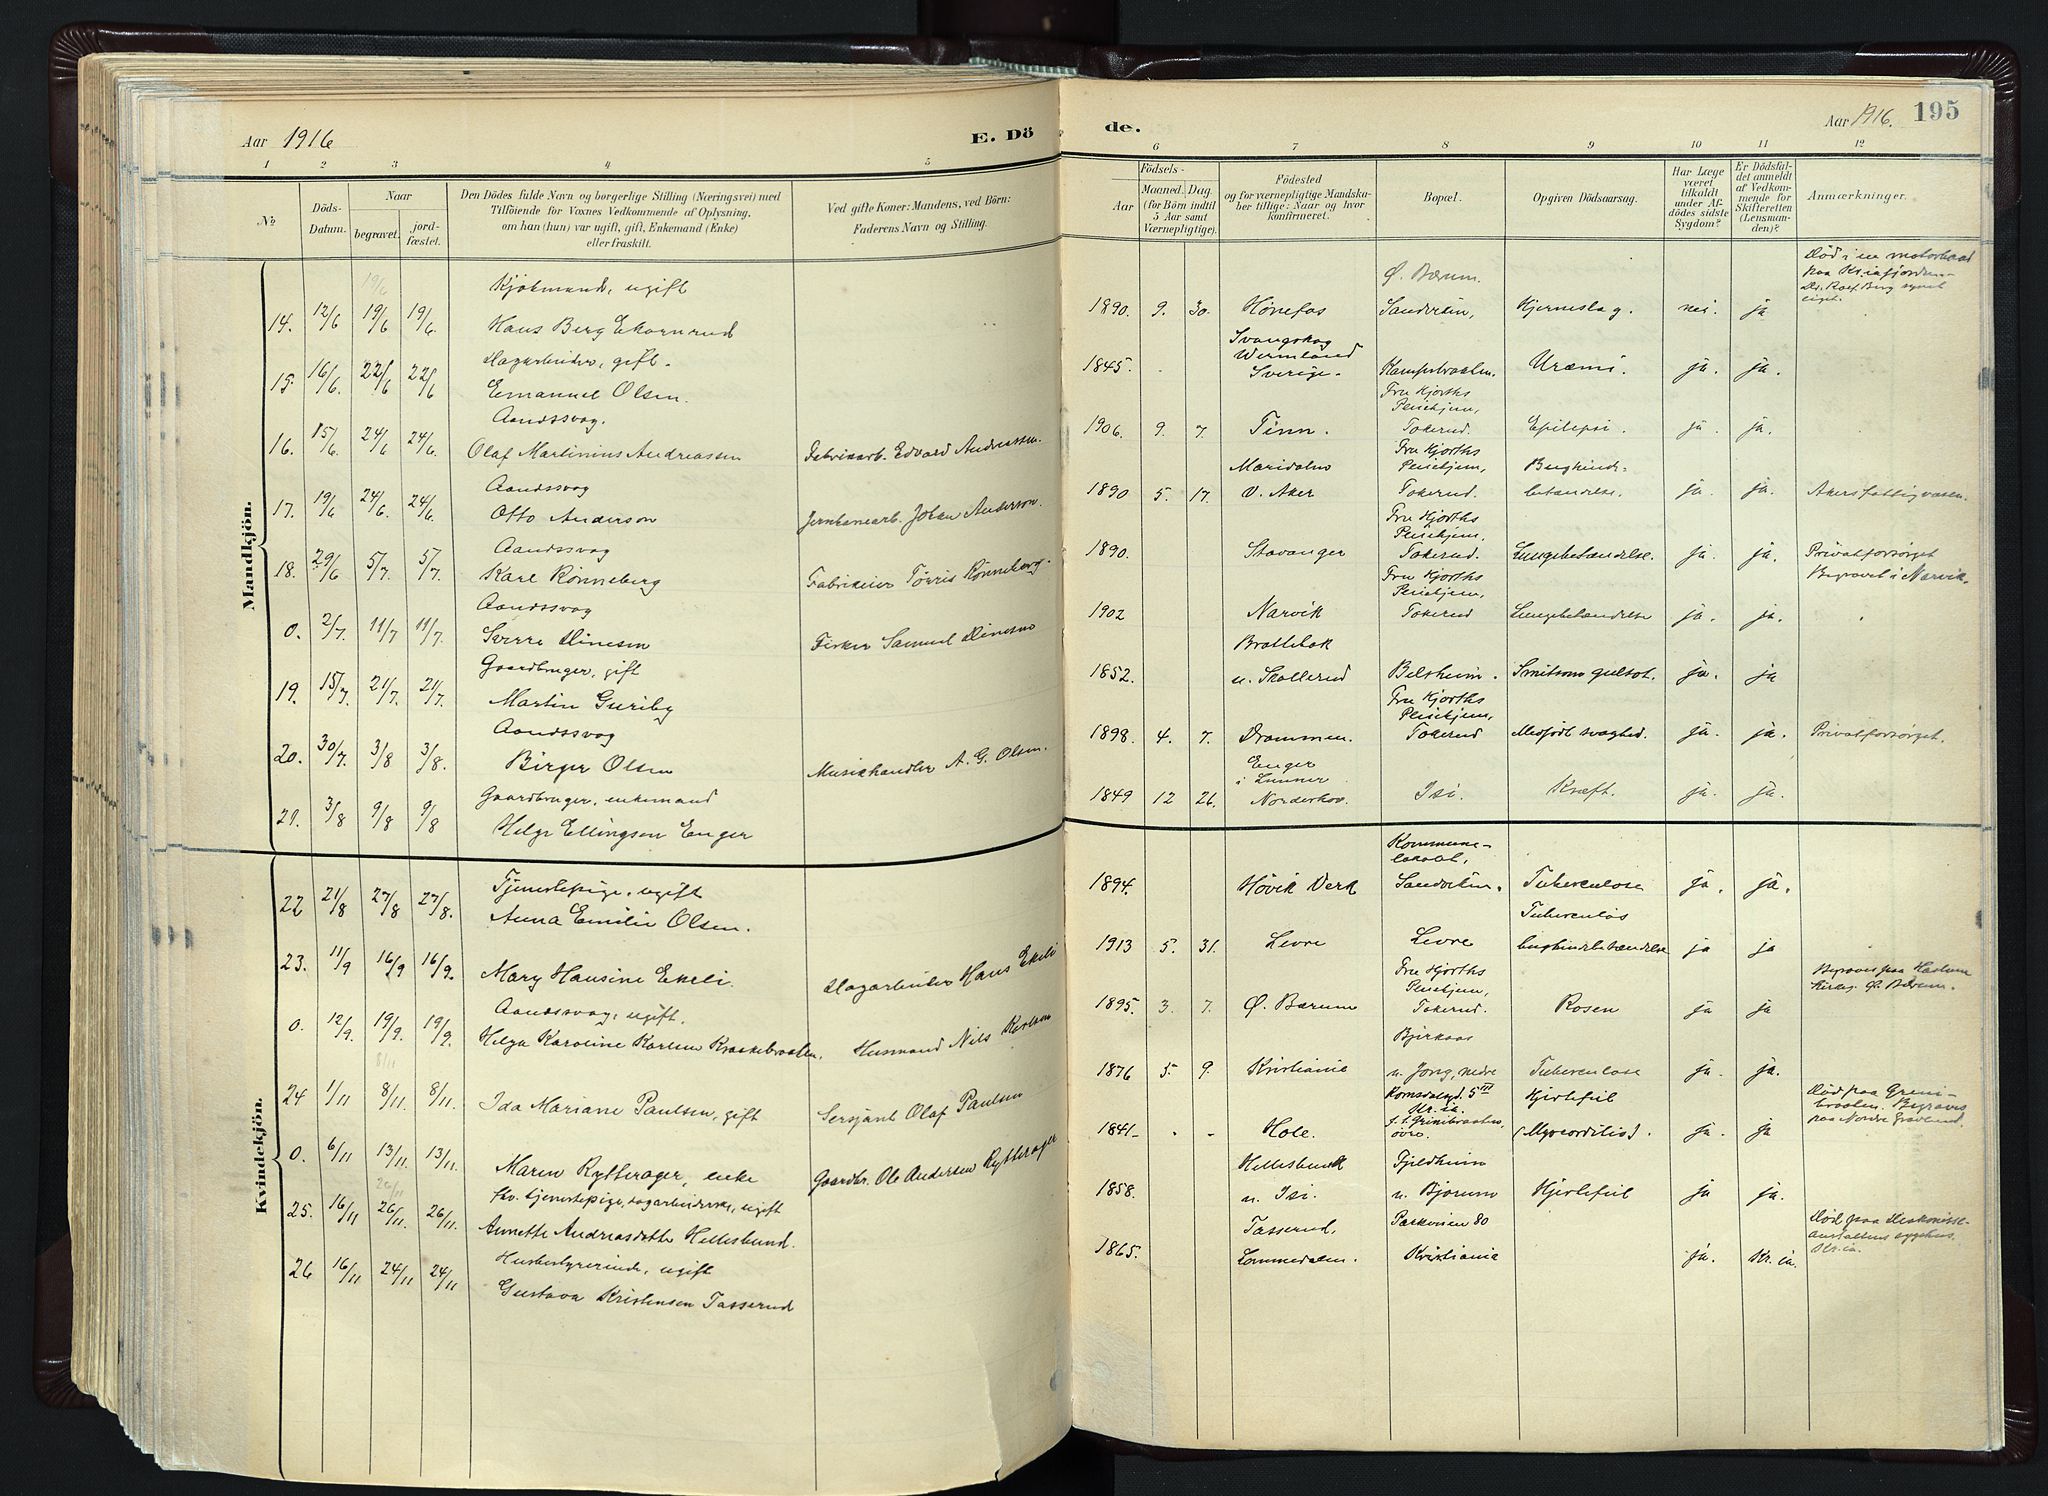 Aar 1916
E. Dö
de.
Aar 1916.
195
1 2 3 4 5 6 7 8 9 10 11 12
No
Döds-
Datum.
Naar
begravet.
jord-
fæstet.
Den Dödes fulde Navn og borgerlige Stilling (Næringsvei) med
Tilföiende for Voxnes Vedkommende af Oplysning,
om han (hun) var ugift, gift, Enkemand (Enke)
eller fraskilt.
Ved gifte Koner: Mandens, ved Börn:
Faderens Navn og Stilling.
Födsels-
Aar
Maaned. Dag.
(for Börn indtil
5 Aar samt
Værnepligtige).
Födested
og for værnepligtige Mandska-
ber tillige: Naar og hvor
konfirmeret.
Bopæl.
Opgiven Dödsaarsag.
Har Læge
været
tilkaldt
under Af-
dödes sidste
Sygdom?
Er Dödsfal-
det anmeldt
af Vedkom-
mende for
Skifteretten
(Lensman-
den)?
Anmærkninger.
Mandkjön.
19/6
Kjøbmand, ugift
14. 12/6 19/6 19/6. Hans Berg Ekornrud
Ø. Bærum.
1890. 9. 30. Hønefos Sandviken, Hjerneslag. nei. ja
Død i en motorbaad
paa Kr.iafjorden.
Dagarbeider, gift.
15. 16/6. 22/6 22/6 Emanuel Olsen.
Svangskog
Wermland
1845. Sverige. Kampebraaten. Uræmi. ja. ja.
Aandssvag.
16. 15/6. 24/6 24/6. Olaf Martinius Andreassen Fabrikarb. Edvard Andreassen.
Fru Hjorths
Pleiehjem,
1906. 9. 7. Tinn. Tokerud. Epilepsi. ja. ja.
Aandssvag
17. 19/6 24/6. 24/6. Otto Anderson Jernbanearb. Johan Anderson.
Maridalen Fru Hjorths Pleiehjem, Bughinde-
1890 5. 17. V. Aker Tokerud. betændelse. ja. ja. Akers fattigvæsen.
Aandssvag
18. 29/6 5/7. 5/7. Karl Rönneberg Fabrikeier Törris Rönneberg.
Fru Hjorths
Pleiehjem,
1890. Stavanger Tokerud. Lungebetændelse. ja. ja. Privatforsørget
Aandssvag
0. 2/7. 11/7 11/7. Sverre Dinesen Fisker Samuel Dinesen
Fru Hjorths
Pleiehjem,
Begravet i Narvik.
1902 Narvik Tokerud Lungebetændelse ja. ja.
Gaardbruger, gift
19. 15/7. 21/7. 21/7. Martin Guriby
Brattebak
1852. u. Skollerud Belsheim. Smitsom gulsot. ja. ja
Aandssvag
20. 30/7. 3/8 3/8. Birger Olsen Musikhandler A. G. Olsen.
Fru Hjorths
Pleiehjem,
1898. 4. 7. Drammen. Tokerud Medfødt svaghed. ja. ja. Privatforsørget.
Gaardbruger, enkemand
21. 3/8 9/8 9/8 Helge Ellingsen Enger
Enger
i Lunner
1849 12 26. Norderhov. Isi. Kræft. ja. ja.
Kvindekjön.
Tjenestepige, ugift
22 21/8 27/8 27/8. Anna Emilie Olsen.
Kommune-
lokalet,
1894. Høvik Verk Sandviken. Tuberculose ja. ja.
23. 11/9 16/9 16/9. Mary Hansine Ekeli. Dagarbeider Hans Ekeli
Tuberculøs
1913 5. 31. Levre Levre bughindebetændelse ja ja
Aandssvag, ugift.
0. 12/9. 19/9. 19/9. Helga Karoline Karlsen Kraakebraaten. Husmand Nils Karlsen
Fru Hjorths
Pleiehjem,
1895. 3. 7. Ø. Bærum Tokerud. Rosen ja ja
Begraves paa Haslum
Kirkeg. Ø. Bærum.
8/11
24 1/11 8/11 8/11. Ida Mariane Paulsen, gift Sersjant Olaf Paulsen
Bjerkaas
1876 5. 9. Kristiania u. Jong, nedre Tuberculose ja. ja.
0. 6/11 13/11. 13/11. Maren Rytterager, enke Gaardbr. Ole Andersen Rytterager
Romsdalsgd. 5 III
Kr.ia.
Hjertefeil
1841. - - Hole. øvre. (Myocarditis). ja. ja
Død paa Grini-
braaten. Begraves
paa Nordre Gravlund.
26/11
fhv. tjenestepige, dagarbeiderske, ugift
25. 16/11 26/11. 26/11. Annette Andreasdatte Hellesbund.
Hellesbund Fjeldheim
1858. u. Isi. u. Bjørum Hjertefeil ja ja.
Husbestyrerinde, ugift
26 16/11 24/11 24/11 Gustava Kristensen Tasserud
Tasserud, Parkveien 80
1865. Lommedalen. Kristiania ja. Kr.ia.
Død paa Diakonisse-
anstaltens sygehus.
Kr.ia.